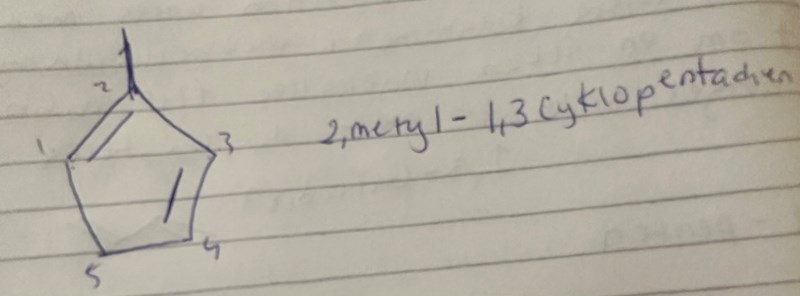 2
1
3
2,metyl - 1,3 Cyklopentadien
4
5